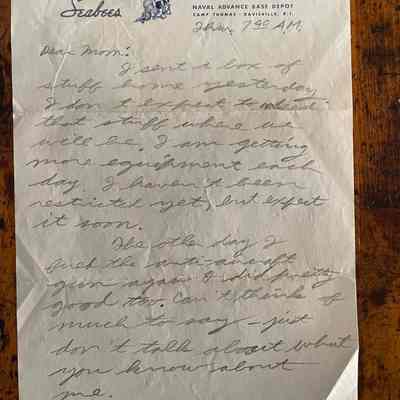 Seabees
NAVAL ADVANCE BASE DEPOT
CAMP THOMAS - DAVISVILLE, R.I.
Thur. 7:00 A.M.
Dear Mom:
I sent a box of
stuff home yesterday,
I don't expect to need
that stuff where we
will be. I am getting
more equipment each
day. I haven't been
restricted yet, but expect
it soon.
The other day I
fired the anti-aircraft
gun again & did pretty
good too. Can't think of
much to say - just
don't talk about what
you know about
me.